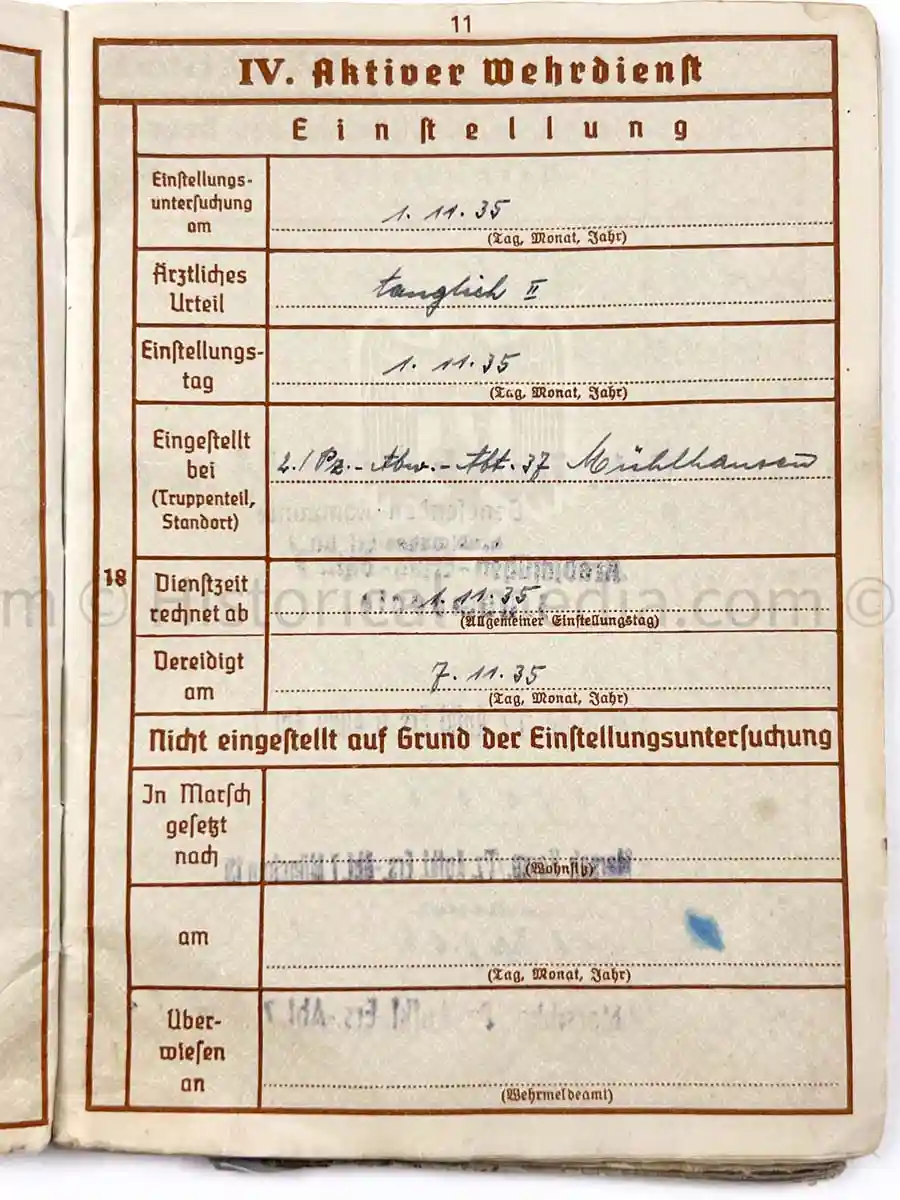 11
IV. Aktiver Wehrdienst
Einstellung
Einstellungs-
untersuchung
am
1. 11. 35
(Tag, Monat, Jahr)
Ärztliches
Urteil
tauglich II
Einstellungs-
tag
1. 11. 35
(Tag, Monat, Jahr)
Eingestellt
bei
(Truppenteil,
Standort)
2./Pz.-Abw.-Abt. 37 Mühlhausen
18
Dienstzeit
rechnet ab
1. 11. 35
(Allgemeiner Einstellungstag)
Vereidigt
am
7. 11. 35
(Tag, Monat, Jahr)
Nicht eingestellt auf Grund der Einstellungsuntersuchung
In Marsch
gesetzt
nach
(Wohnsitz)
am
(Tag, Monat, Jahr)
Über-
wiesen
an
(Wehrmeldeamt)